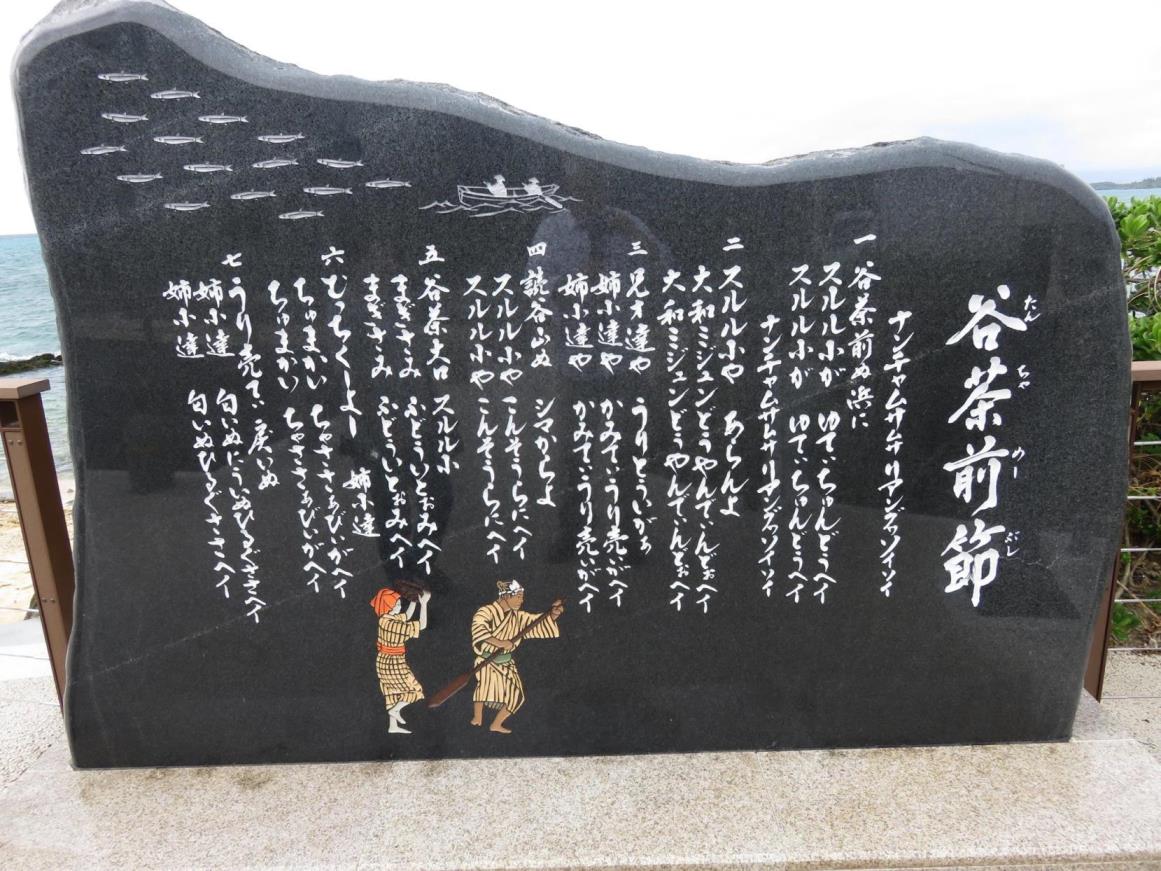 谷茶前節
たんちゃめーぶし
一 谷茶前ぬ浜に
スルル小が ゆてぃちゅんどうヘイ
スルル小が ゆてぃちゅんどうヘイ
ナンチャムサムサ リアングヮソイソイ
ナンチャムサムサ リアングヮソイソイ
二 スルル小や あらんよ
大和ミジュンどうやんてぃんどぉヘイ
大和ミジュンどうやんてぃんどぉヘイ
三 兄才達や うりとういがぁ
姉小達や かみてぃうり売がヘイ
姉小達や かみてぃうり売いがヘイ
四 読谷山ぬ シマからちよ
スルル小や こんそうらにヘイ
スルル小や こんそうらにヘイ
五 谷茶大口 スルル小
まぎさみ ぶどういとぉみヘイ
まぎさみ ぶどういとぉみヘイ
六 むっちくーよー 姉小達
ちゅまかい ちゃささぁびいがヘイ
ちゅまかい ちゃささぁびいがヘイ
七 うり売てぃ 戻いぬ
姉小達 匂いぬにういぬひるぐささヘイ
姉小達 匂いぬひるぐささヘイ